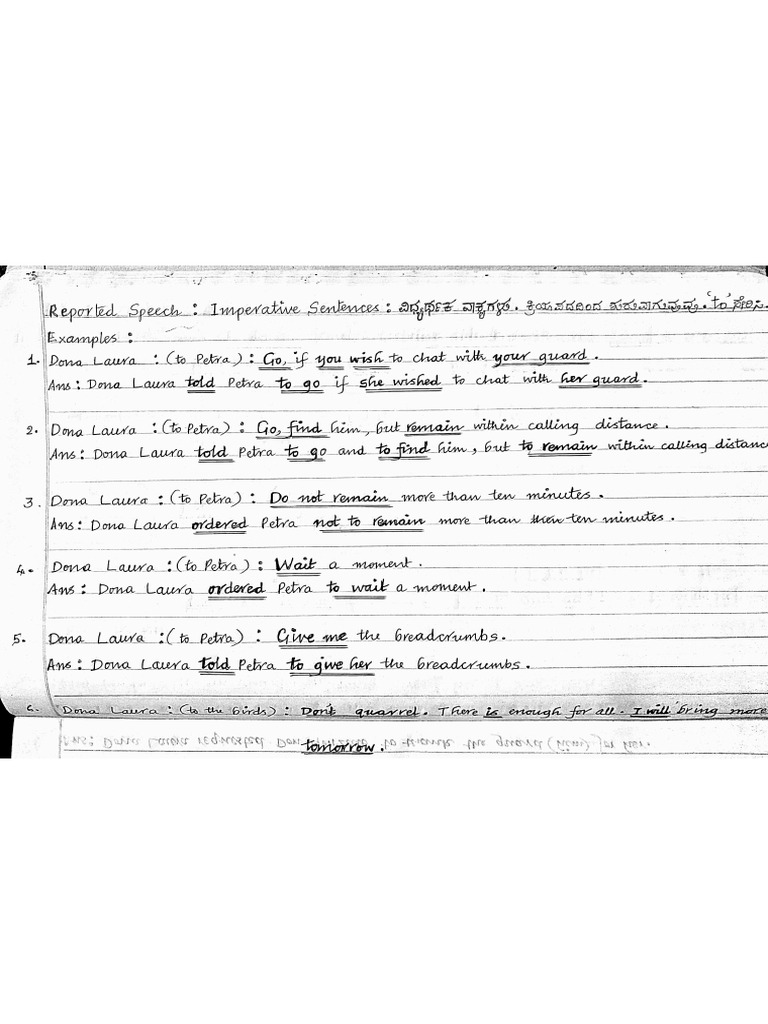 Reported Speech : Imperative Sentences : ವಿಧ್ಯರ್ಥಕ ವಾಕ್ಯಗಳು. ಕ್ರಿಯಾಪದದಿಂದ ಶುರುವಾಗುವುವು. 'to' ಸೇರಿಸಿ.
Examples :
1. Dona Laura : (to Petra) : Go, if you wish to chat with your guard.
Ans : Dona Laura told Petra to go if she wished to chat with her guard.
2. Dona Laura : (to Petra) : Go, find him, but remain within calling distance.
Ans : Dona Laura told Petra to go and to find him, but to remain within calling distance
3. Dona Laura : (to Petra) : Do not remain more than ten minutes.
Ans : Dona Laura ordered Petra not to remain more than ten minutes.
4. Dona Laura : (to Petra) : Wait a moment.
Ans : Dona Laura ordered Petra to wait a moment.
5. Dona Laura : (to Petra) : Give me the breadcrumbs.
Ans : Dona Laura told Petra to give her the breadcrumbs.
6. Dona Laura : (to the birds) : Don't quarrel. There is enough for all. I will bring more
tomorrow.